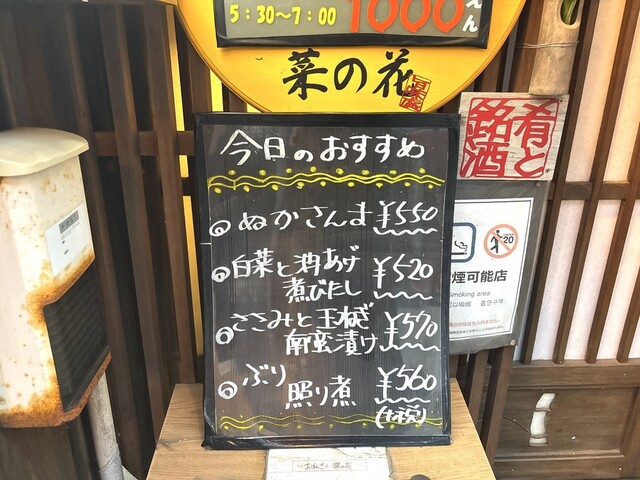 5:30〜7:00 1000えん
菜の花
今日のおすすめ
ぬかさんま ¥550
白菜と油あげ
煮びたし ¥520
ささみと玉ねぎ
南蛮漬け ¥570
ぶり
照り煮 ¥560
(+税)
肴と
銘酒
20
煙可能店
Smoking area
可以吸烟 흡연구역